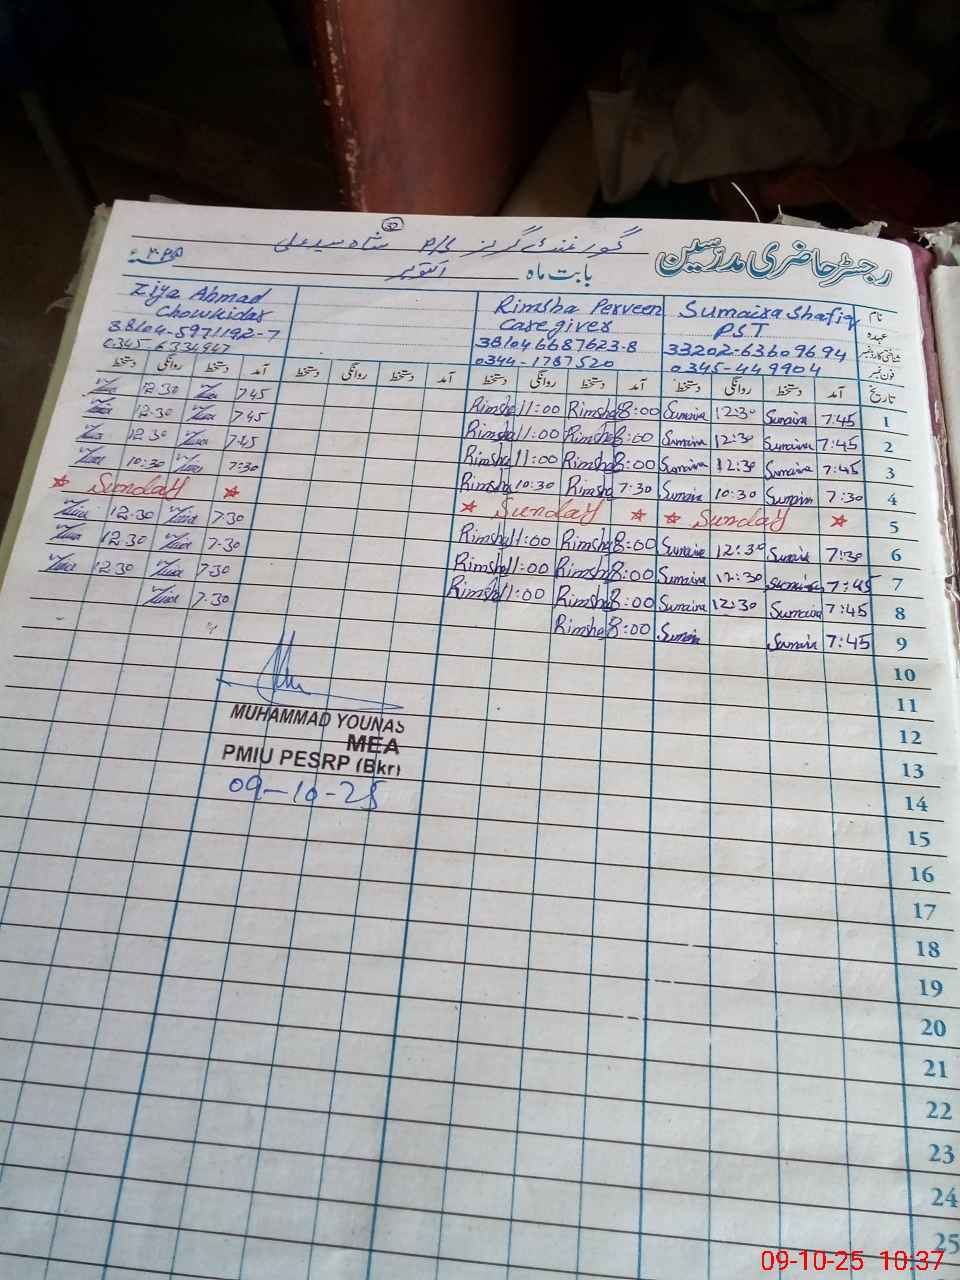 رجسٹر حاضری مدرسین
گورنمنٹ گرلز P/S شاہ سید علی
بابت ماہ اکتوبر
نام Sumaira Shafiq Rimsha Perveen Ziya Ahmad
عہدہ PST Caregiver Chowkidar
شناختی کارڈ نمبر 33202-6360969 4 381046687623-8 38104-5971192-7
فون نمبر 0345-449904 0344-1787520 0345-6334947
تاریخ آمد دستخط روانگی دستخط آمد دستخط روانگی دستخط آمد دستخط روانگی دستخط آمد دستخط روانگی دستخط
1 7:45 Sumaira 12:30 Sumaira 8:00 Rimsha 11:00 Rimsha 7.45 Ziaa 12.30 Ziaa
2 7:45 Sumaira 12:30 Sumaira 8:00 Rimsha 11:00 Rimsha 7.45 Ziaa 12.30 Ziaa
3 7:45 Sumaira 12:30 Sumaira 8:00 Rimsha 11:00 Rimsha 7.45 Ziaa 12.30 Ziaa
4 7:30 Sumaira 10:30 Sumaira 7:30 Rimsha 10:30 Rimsha 7:30 Ziaa 10:30 Ziaa
5 Sunday Sunday Sunday
6 7:30 Sumaira 12:30 Sumaira 8:00 Rimsha 11:00 Rimsha 7.30 Ziaa 12.30 Ziaa
7 7:45 Sumaira 12:30 Sumaira 8:00 Rimsha 11:00 Rimsha 7.30 Ziaa 12.30 Ziaa
8 7:45 Sumaira 12:30 Sumaira 8:00 Rimsha 11:00 Rimsha 7.30 Ziaa 12.30 Ziaa
9 7:45 Sumaira Sumaira 8:00 Rimsha 7.30 Ziaa
10
11
12
13
14
15
16
17
18
19
20
21
22
23
24
25
MUHAMMAD YOUNAS
MEA
PMIU PESRP (Bkr)
09-10-25
09-10-25 10:37